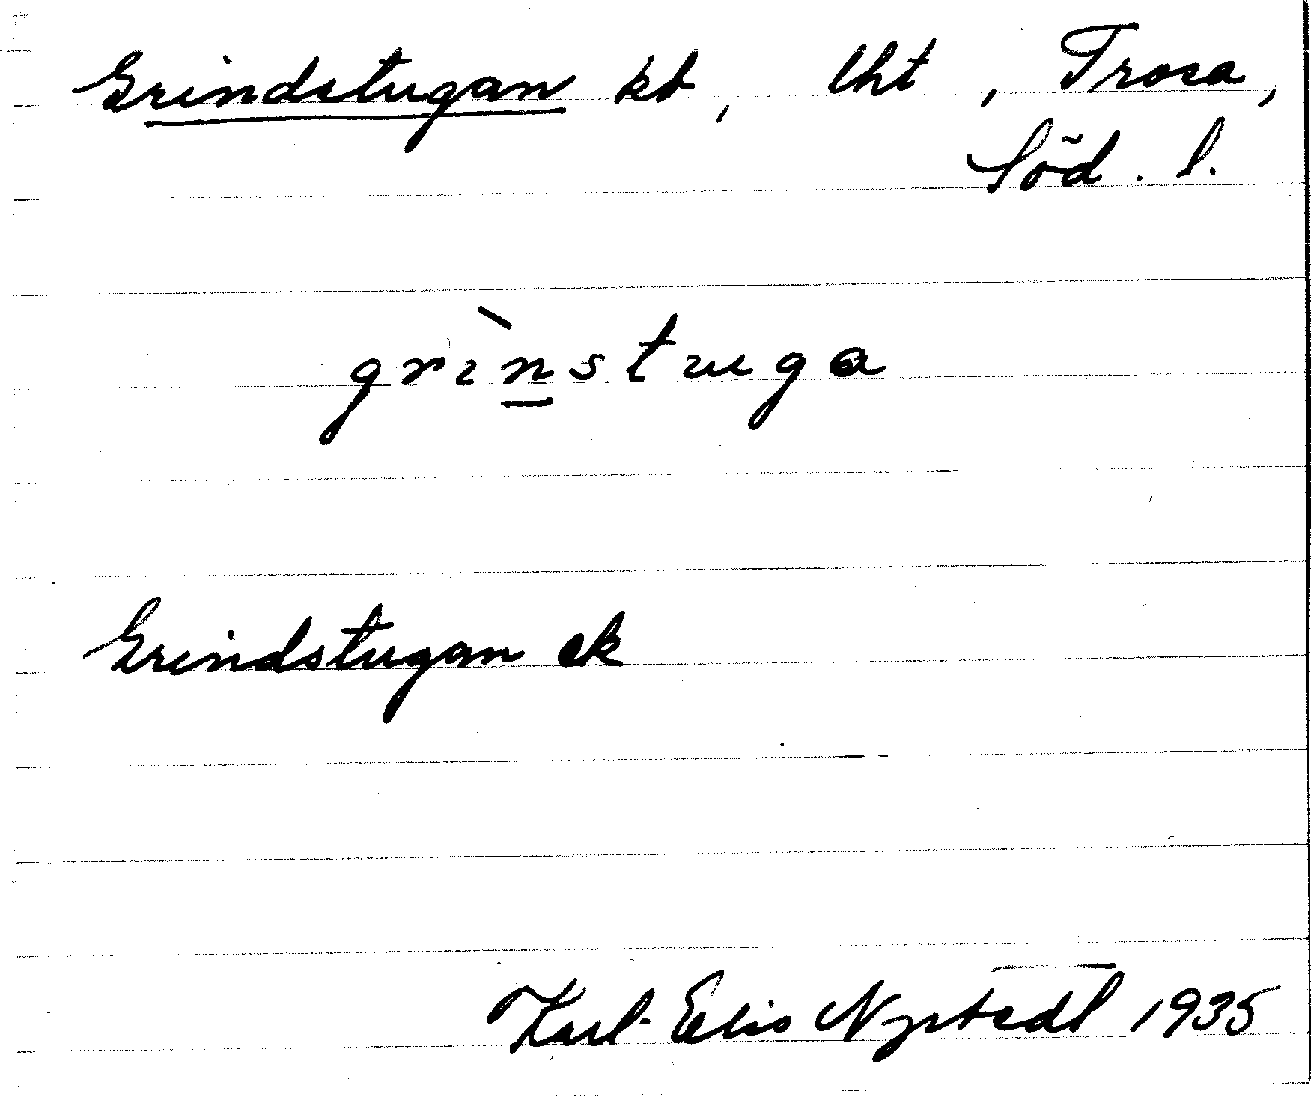 Grindstugan kb, Vht, Trosa,
Söd. l.
grìnstuga
Grindstugan ek
Karl-Elis Nystedt 1935